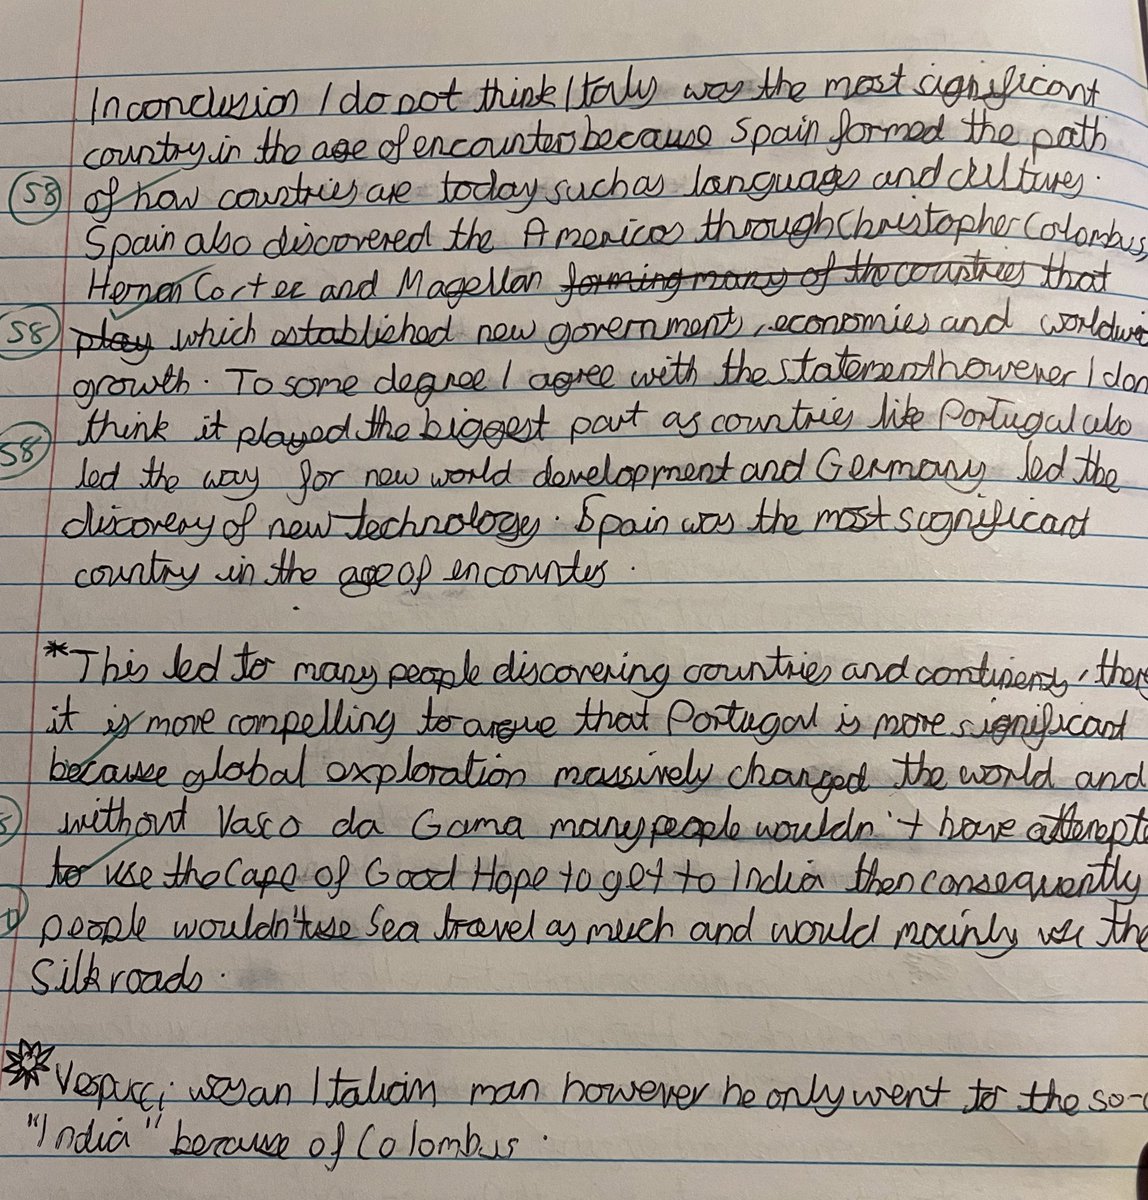 In conclusion I do not think Italy was the most significant
country in the age of encounters because Spain formed the path
S8 of how countries are today such as languages and cultures.
Spain also discovered the Americas through Christopher Colombus,
Hernan Cortez and Magellan forming many of the countries that
S8 play which established new governments, economies and worldwi
growth. To some degree I agree with the statement however I don
S8 think it played the biggest part as countries like Portugal also
led the way for new world development and Germany led the
discovery of new technology. Spain was the most significant
country in the age of encounter.
*This led to many people discovering countries and continents,
it is more compelling to argue that Portugal is more significant
because global exploration massively changed the world and
without Vasco da Gama many people wouldn't have attempt
to use the Cape of Good Hope to get to India then consequently
people wouldn't use Sea travel as much and would mainly use the
Silk roads.
Vespucci was an Italian man however he only went to the so-
"India" because of Colombus.